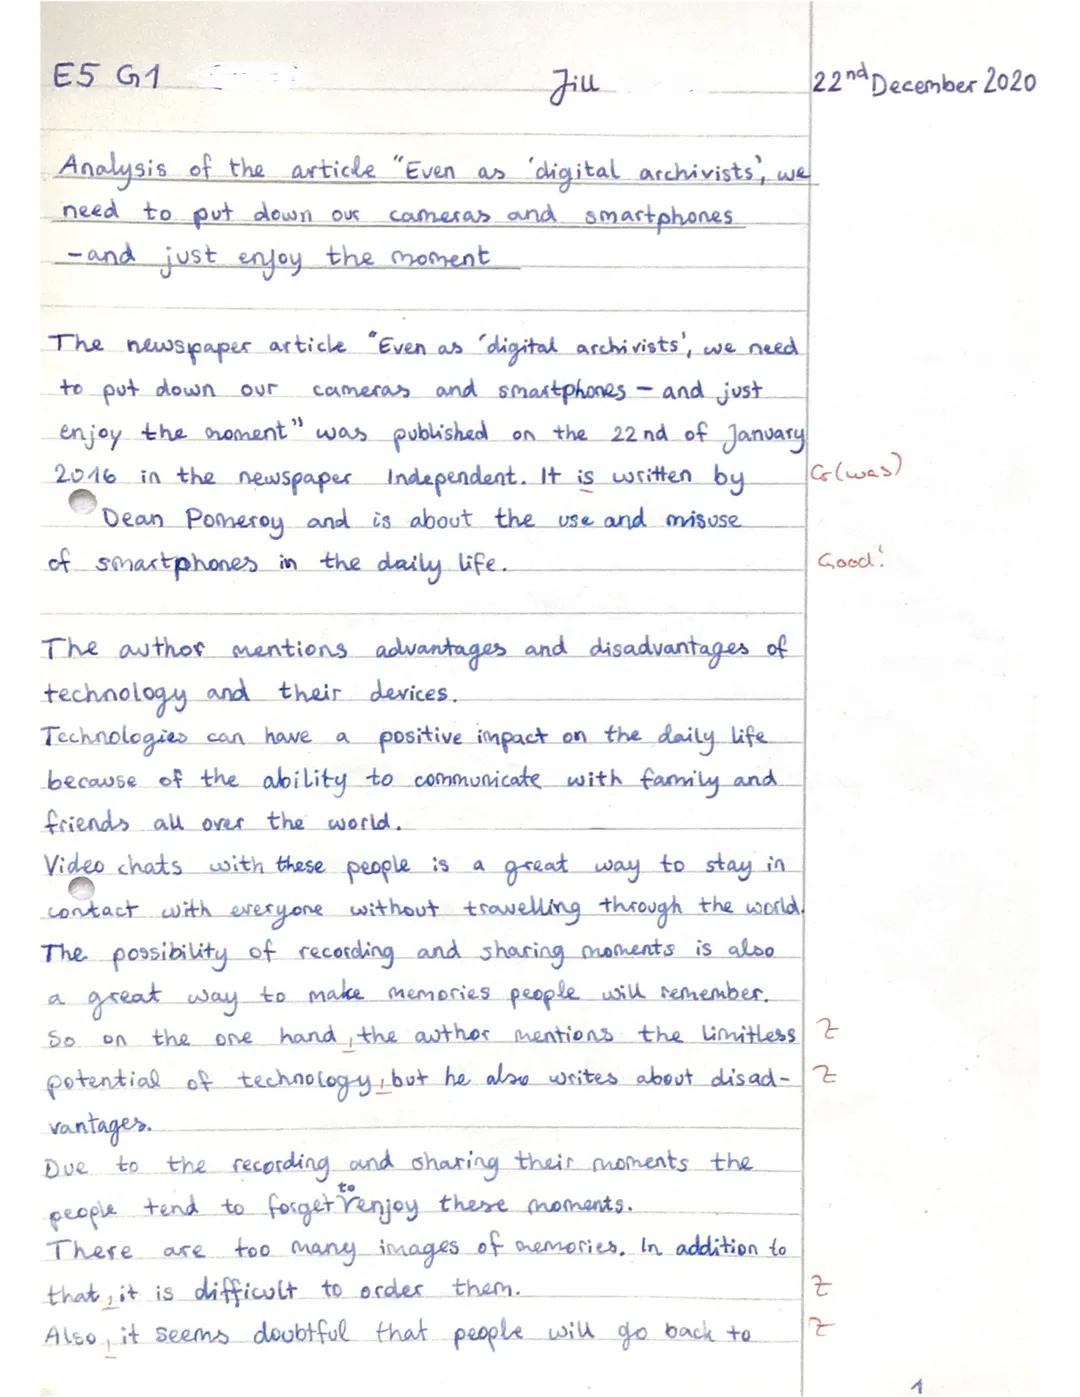 E5 G1 Jill 22nd December 2020
Analysis of the article "Even as 'digital archivists', we
need to put down our cameras and smartphones
- and just enjoy the moment
The newspaper article "Even as 'digital archivists', we need
to put down our cameras and smartphones - and just
enjoy the moment" was published on the 22nd of January
2016 in the newspaper Independent. It is written by Gr (was)
Dean Pomeroy and is about the use and misuse
of smartphones in the daily life. Good!
The author mentions advantages and disadvantages of
technology and their devices.
Technologies can have a positive impact on the daily life
because of the ability to communicate with family and
friends all over the world.
Video chats with these people is a great way to stay in
contact with everyone without travelling through the world.
The possibility of recording and sharing moments is also
a great way to make memories people will remember.
So on the one hand, the author mentions the limitless Z
potential of technology, but he also writes about disad- Z
vantages.
Due to the recording and sharing their moments the
people tend to forget to enjoy these moments.
There are too many images of memories. In addition to
that, it is difficult to order them. Z
Also, it seems doubtful that people will go back to Z
1